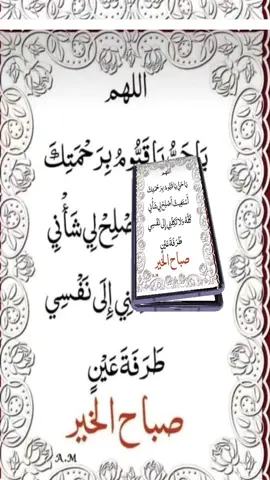 اللهم
يَا حَيُّ يَا قَيُّومُ بِرَحْمَتِكَ
أَصْلِحْ لِي شَأْنِي
إِلَى نَفْسِي
طَرَفَةَ عَيْنٍ
صباح الخير
A.M
اللهم
يَا حَيُّ يَا قَيُّومُ بِرَحْمَتِكَ
أَسْتَغِيثُ أَصْلِحْ لِي شَأْنِي
كُلَّهُ وَلَا تَكِلْنِي إِلَى نَفْسِي
طَرَفَةَ عَيْنٍ
صباح الخير